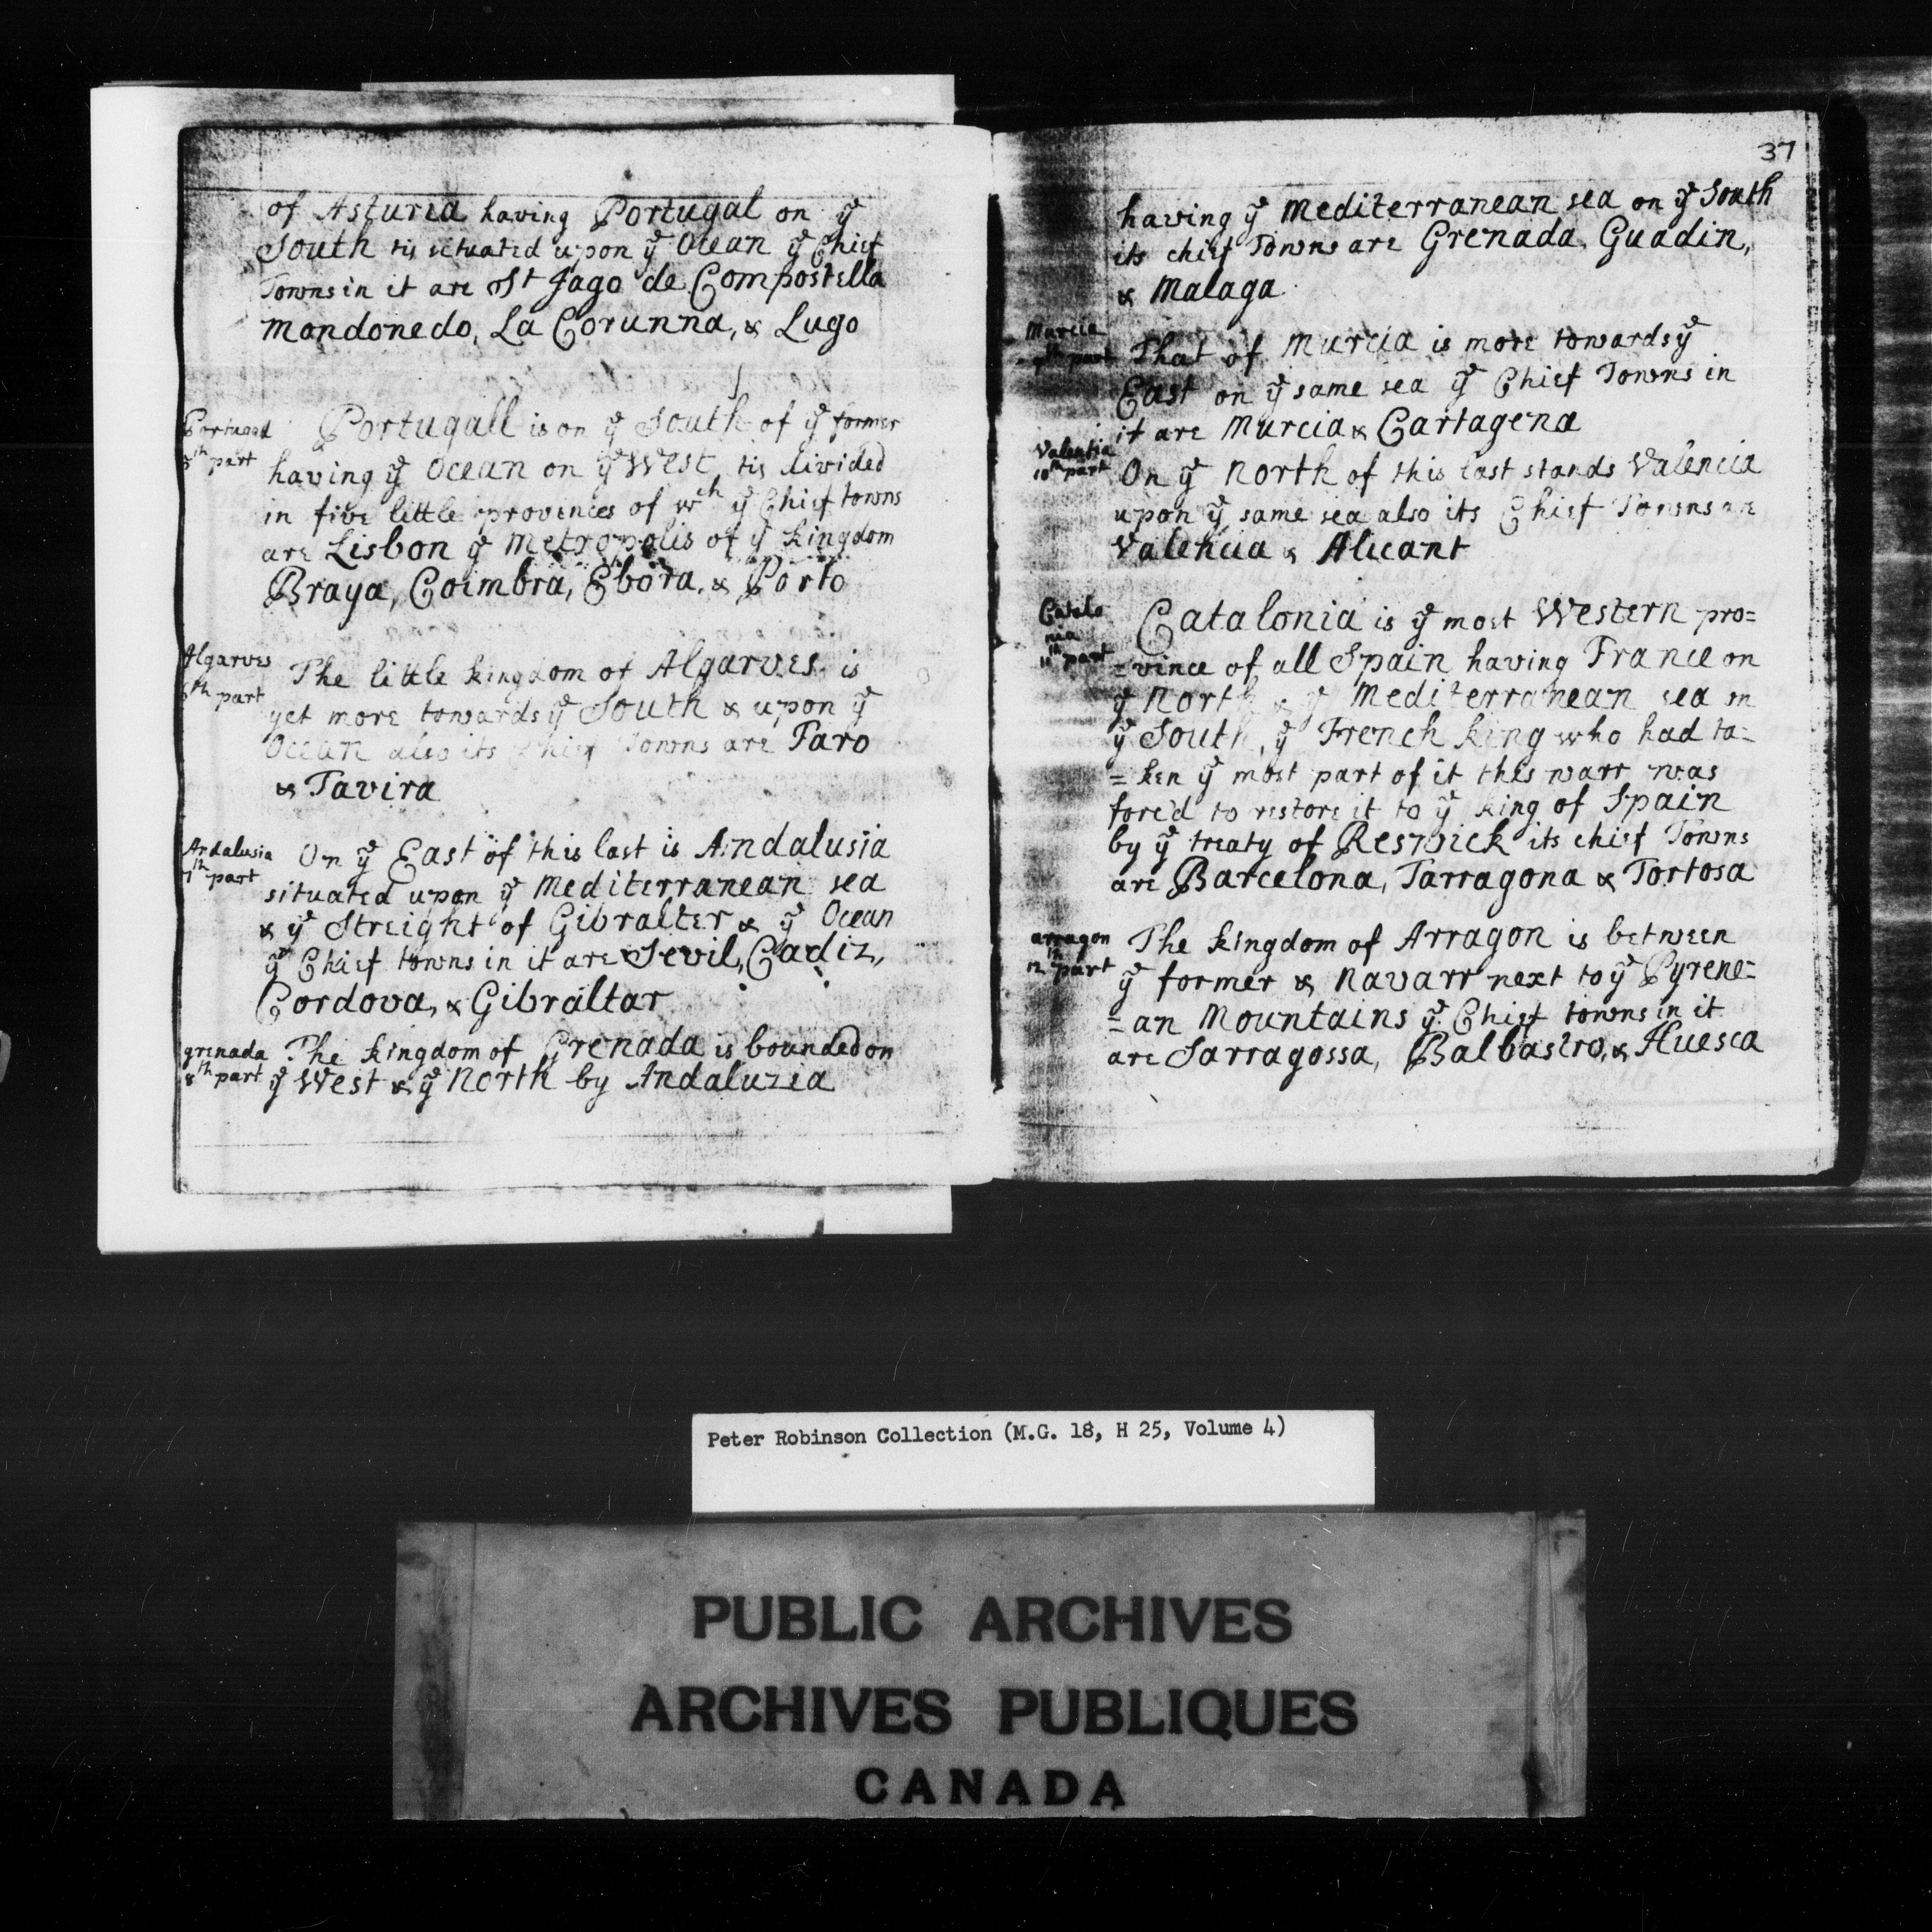 of Asturia having Portugal on yͤ
South tis situated upon yͤ Ocean yͤ Chief
Towns in it are St Jago de Compostella
Mondonedo, La Corunna, & Lugo
Portugal
5th part
Portugall is on yͤ South of yͤ former
having yͤ Ocean on yͤ West, tis divided
in five little provinces of wch yͤ Chief towns
are Lisbon yͤ Metropolis of yͤ kingdom
Braya, Coimbra, Ebora, & Porto
Algarves
6th part
The little kingdom of Algarves is
yet more towards yͤ South & upon yͤ
Ocean also its Chief Towns are Faro
& Tavira
Andalusia
7th part
On yͤ East of this last is Andalusia
situated upon yͤ Mediterranean sea
& yͤ Streight of Gibralter & yͤ Ocean
yͤ Chief towns in it are Sevil, Cadiz,
Cordova, & Gibraltar
grenada
8th part
The kingdom of Grenada is bounded on
yͤ West & yͤ North by Andaluzia
37
having yͤ Mediterranean sea on yͤ South
its chief Towns are Grenada, Guadin,
& Malaga
Murcia
9th part
That of Murcia is more towards yͤ
East on yͤ same sea yͤ Chief Towns in
it are Murcia & Cartagena
Valentia
10th part
On yͤ North of this last stands Valencia
upon yͤ same sea also its Chief Towns are
Valencia & Alicant
Catalo
nia
11th part
Catalonia is yͤ most Western pro=
=vince of all Spain having France on
yͤ North & yͤ Mediterranean sea on
yͤ South, yͤ French king who had ta=
=ken yͤ most part of it this warr was
forc'd to restore it to yͤ king of Spain
by yͤ treaty of Reswick its chief Towns
are Barcelona, Tarragona & Tortosa
arragon
12th part
The kingdom of Arragon is between
yͤ former & Navarr next to yͤ Pyrene=
=an Mountains yͤ Chief towns in it
are Sarragossa, Balbastro, & Huesca
Peter Robinson Collection (M.G. 18, H 25, Volume 4)
PUBLIC ARCHIVES
ARCHIVES PUBLIQUES
CANADA